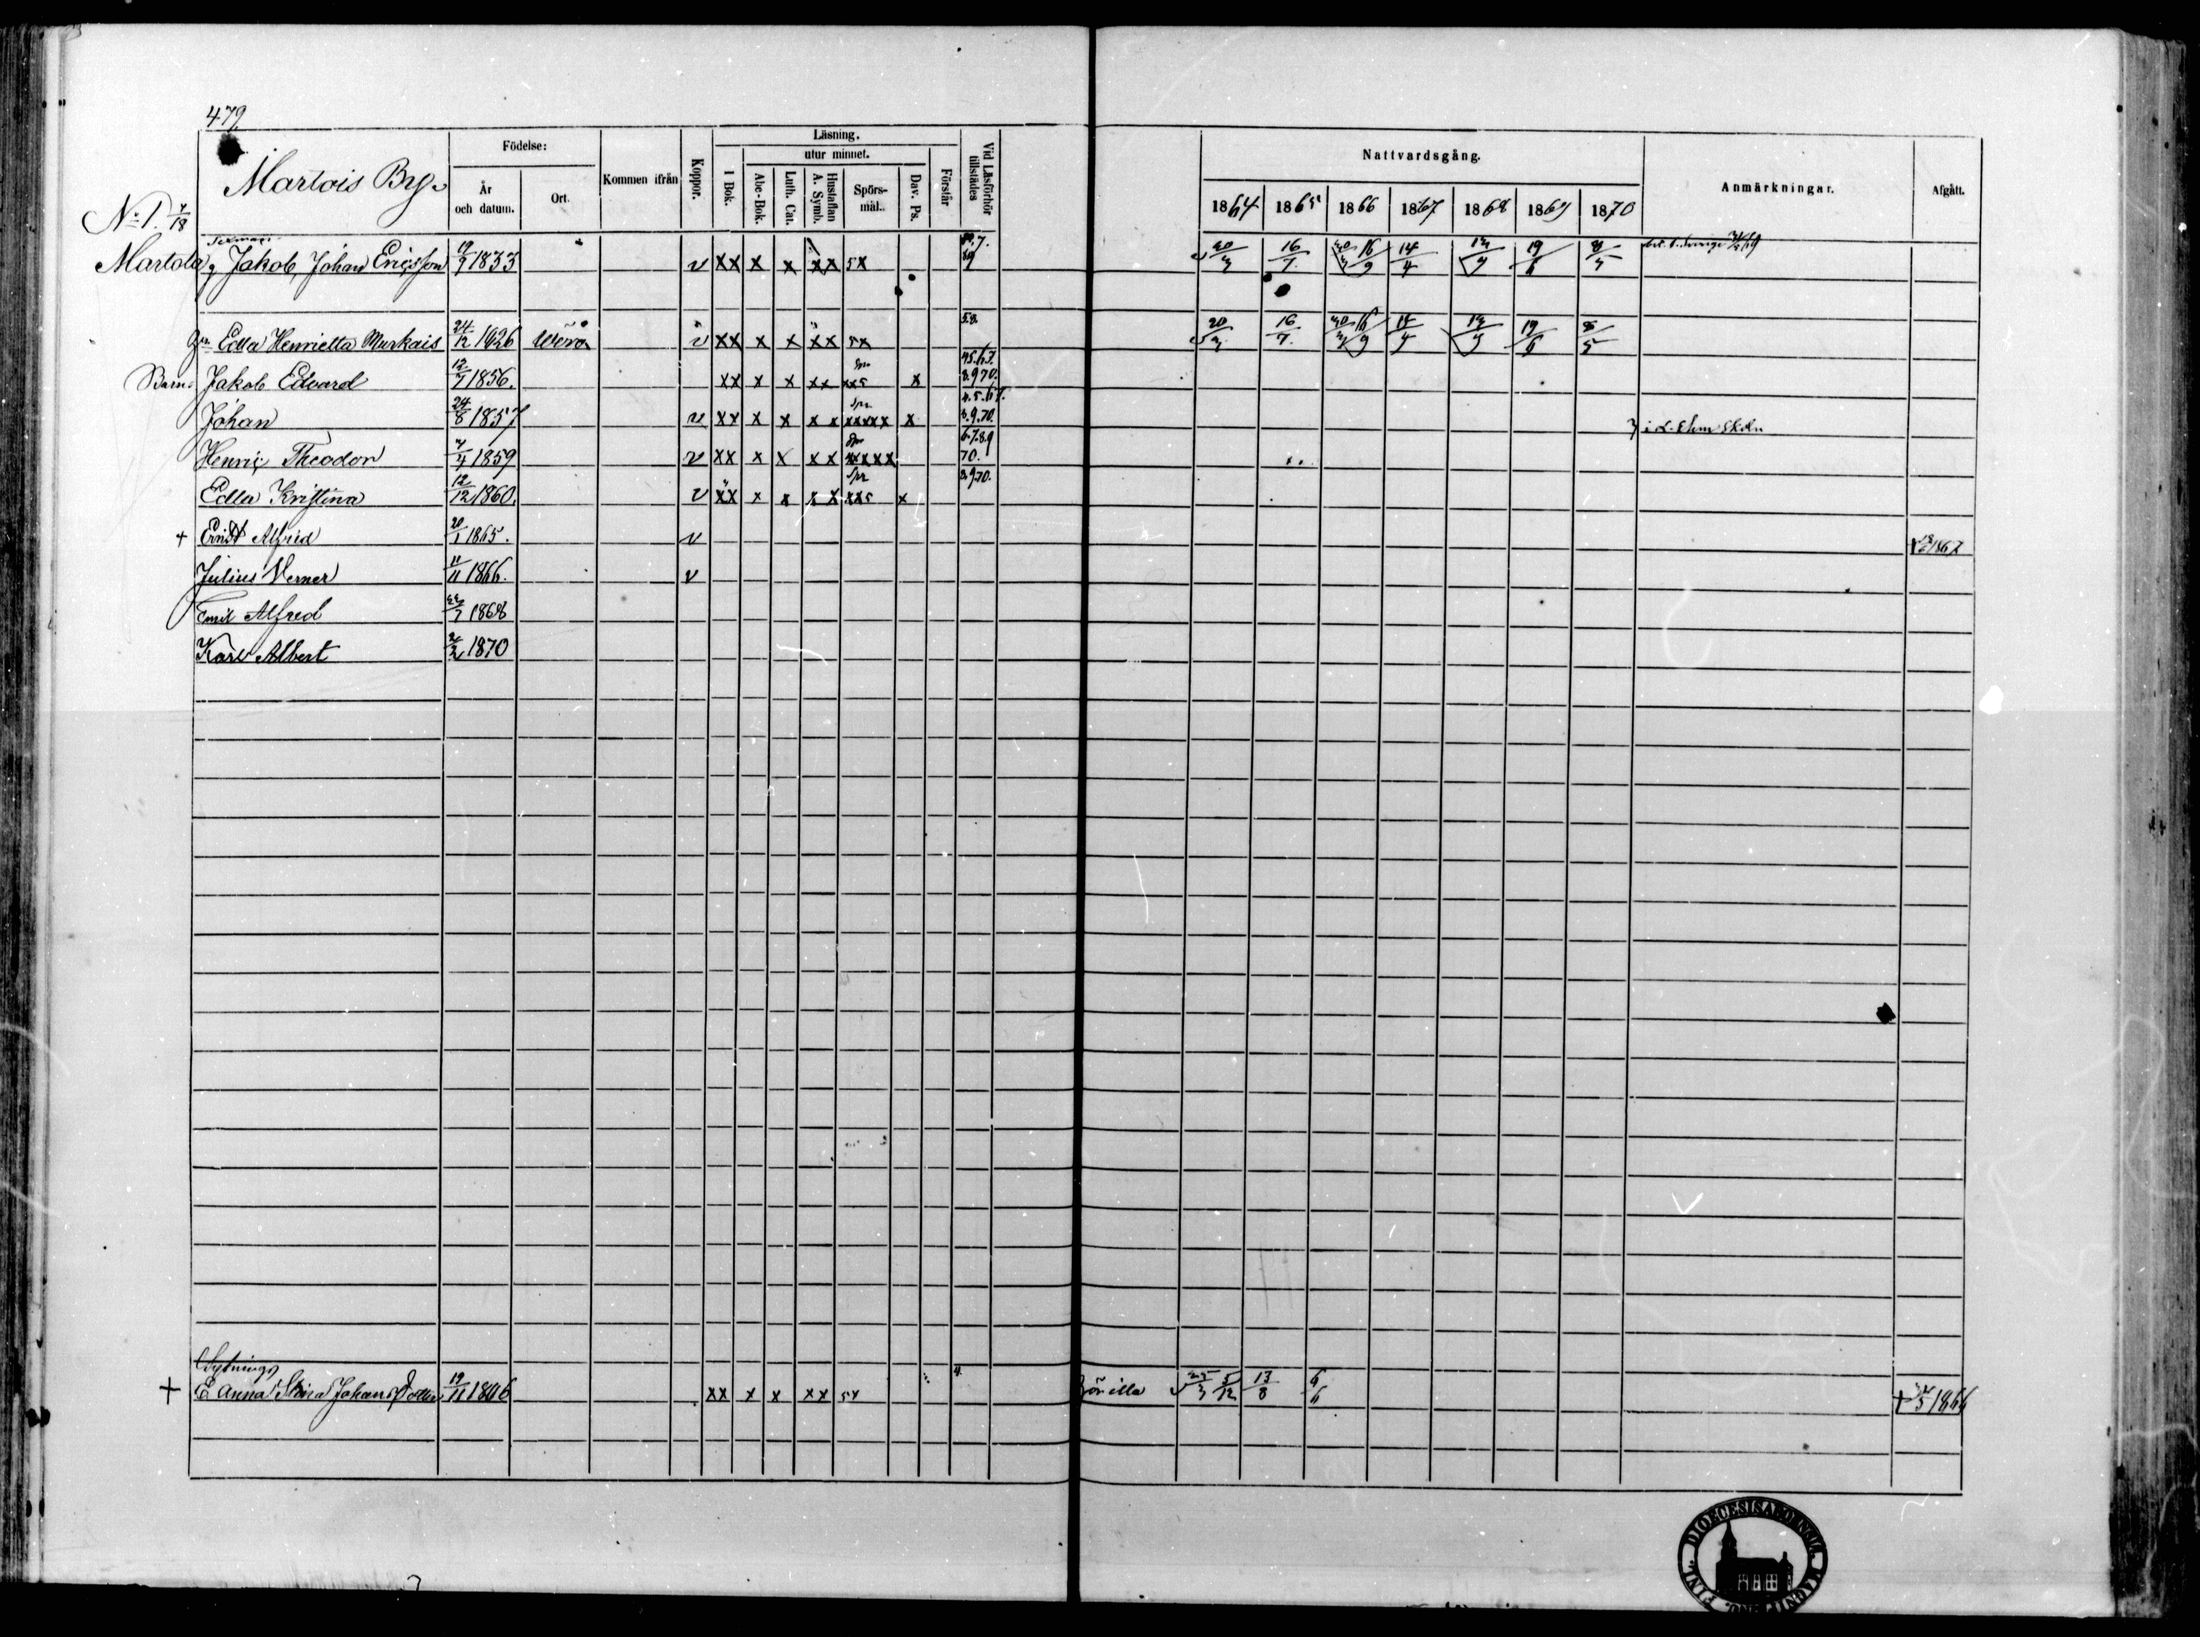 479
Martois By.
Födelse:
År och datum.
Ort.
Kommen ifrån
Koppor.
Läsning.
utur minnet.
I Bok.
Abc-Bok.
Luth. Cat.
Hustaflan A. Symb.
Spörs-mål.
Dav. Ps.
Förstår
Vid Läsförhör tillstädes
Nattvardsgång.
1864 1865 1866 1867 1868 1869 1870
Anmärkningar.
Afgått.
No 1. 7/18
Martola
Jakob Johan Ericsson 19/7 1833 v xx x x xx 5x 20/3 16/7. 16/9 14/4 19/6
Edla Henrietta Murkais 24/12 1826 Wörå v xx x x xx 5x 20/3 16/7. 16/9 19/6
Barn: Jakob Edvard 12/7 1856. xx x x xx xx5 x
Johan 24/8 1857 v xx x x x x xxxxx x 8.9.70.
Henric Theodor 1859 v xx x x x x xxxxx 6.7.8.9 70.
Edla Kristina 12/12 1860. v xx x x x x xx5 x
+ Ernst Alfrid 20/1 1865. v 1867
Julius Verner 11/11 1866. v
Emil Alfred 1868
Karl Albert 1870
Sytnings
+ E. Anna Stina Johansdotter 19/11 1806 xx x x xx 5/12 13/8 6/6 + 1866
DIOECESIS ABOENSIS. MAGNI DUC. FINL.